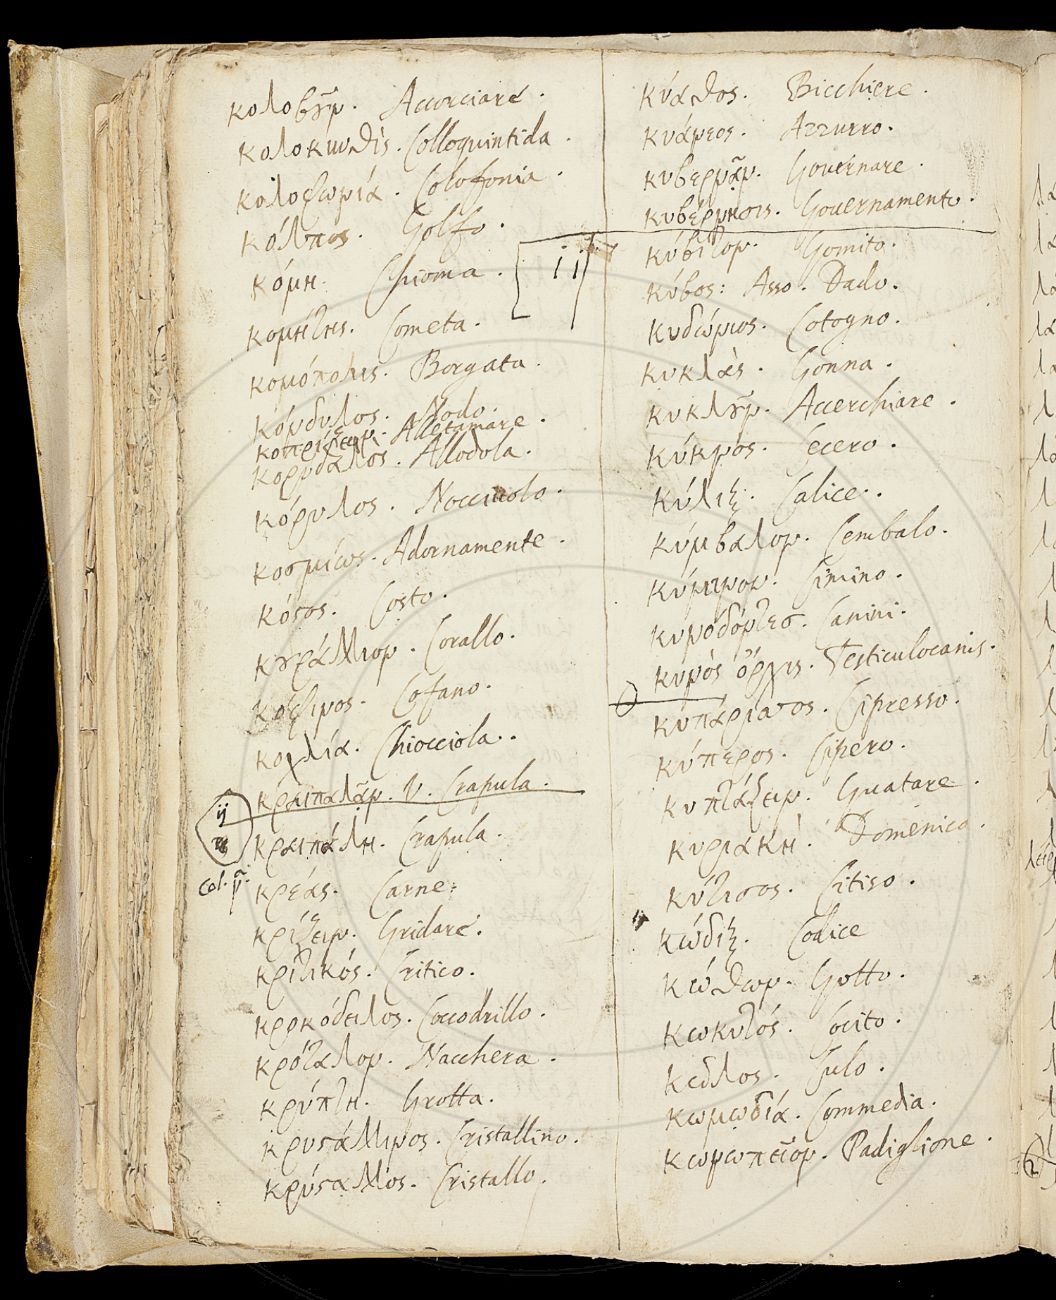 κολοβȣ͂ν. Accorciare.
κολοκυνθὶς. Colloquintida.
κολοφωνιά. Colofonia.
κόλπος. Golfo.
κόμη. Chioma.
κομήτης. Cometa.
κομόπολις. Borgata.
κόνδυλος. Nodo.
κοπρίζειν. Alletamare.
κορυδαλὸς. Allodola.
κόρυλος. Nocciuolo.
κοσμίως. Adornamente.
κόϛος. Costo.
κȣράλλιον. Corallo.
κόφινος. Cofano.
κοχλία. Chiocciola.
κραιπαλᾶν. V. Crapula.
ij
κραιπάλη. Crapula.
col. ij.
κρέας. Carne:
κρίζειν. Gridare.
κριτικός. Critico.
κροκόδειλος. Coccodrillo.
κρόταλον. Nacchera.
κρύπτη. Grotta.
κρυϛάλλινος. Cristallino.
κρύϛαλλος. Cristallo.
κύαθος. Bicchiere.
κυάνεος. Azzurro.
κυβερνᾶν. Governare.
κυβέρνησις. Gouernamento.
ij
κύβιτον. Gomito.
κύβος: Asso. Dado.
κυδώνιος. Cotogno.
κυκλὰς. Gonna.
κυκλȣ͂ν. Accerchiare.
κύκνος. Cecero.
κύλιξ. Calice.
κύμβαλον. Cembalo.
κύμινον. Cimino.
κυνοδόντεσ. Canini.
κυνὸς ὄρχις. Testiculocanis.
κυπάρισσος. Cipresso.
κύπερος. Cipero.
κυπτάζειν. Guatare.
κυριακὴ. Domenica.
κύτισος. Citiso.
κώδιξ. Codice
κώθων. Gotto.
κωκυτός. Cocito.
Culo.
κωμῳδιά. Commedia.
κωνωπεῖον. Padiglione.